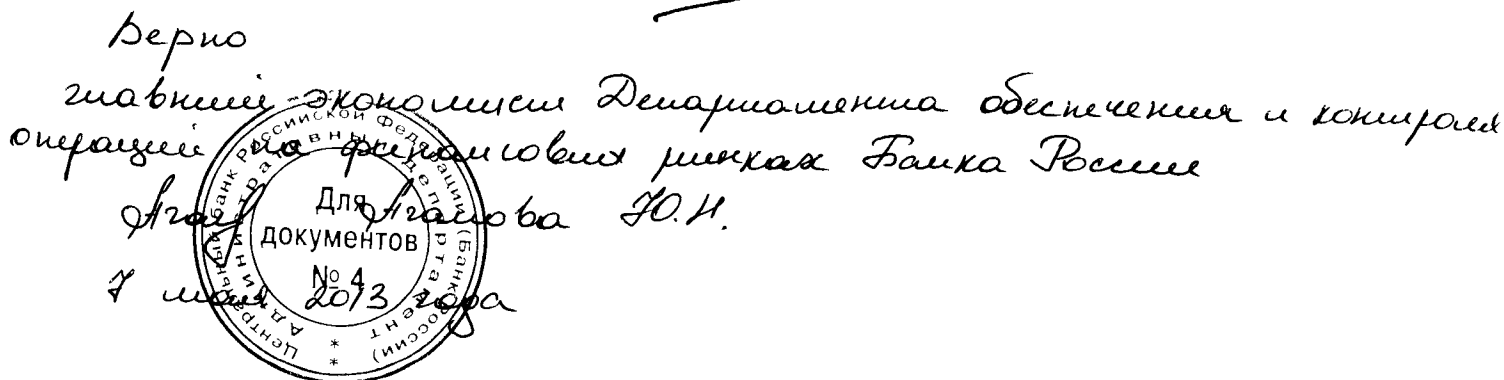 Верно
главный экономист Департамента обеспечения и контроля
операций на финансовых рынках Банка России
Агапова Ю.Н.
7 мая 2013 года
Центральный банк Российской Федерации (Банк России)
Административный департамент
Для
документов
№ 4
* *